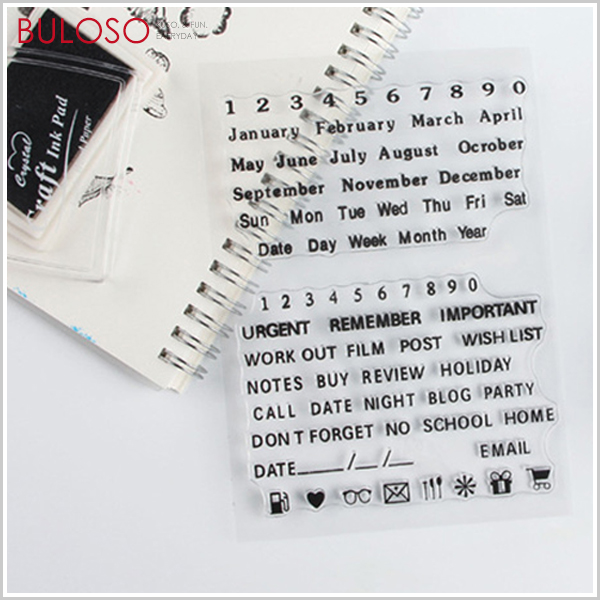 BULOSO
EVERYDAY
Crystal
Craft Ink Pad
Paper
1 2 3 4 5 6 7 8 9 0
January February March April
May June July August Ocrober
September November December
Sun Mon Tue Wed Thu Fri Sat
Date Day Week Month Year
1 2 3 4 5 6 7 8 9 0
URGENT REMEMBER IMPORTANT
WORK OUT FILM POST WISH LIST
NOTES BUY REVIEW HOLIDAY
CALL DATE NIGHT BLOG PARTY
DON T FORGET NO SCHOOL HOME
EMAIL
DATE____/__/__